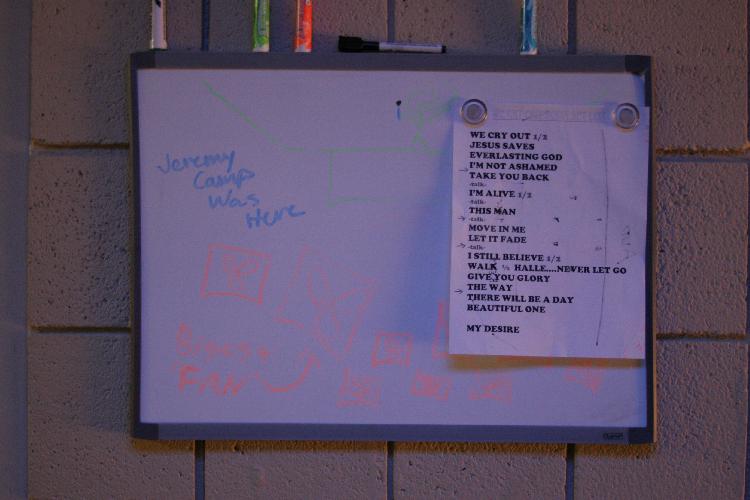 Jeremy
Camp
Was
Here
WE CRY OUT 1/2
JESUS SAVES
EVERLASTING GOD
I'M NOT ASHAMED
TAKE YOU BACK
-talk-
I'M ALIVE 1/2
-talk-
THIS MAN
-talk-
MOVE IN ME
LET IT FADE
-talk-
I STILL BELIEVE 1/2
WALK ½ HALLE....NEVER LET GO
GIVE YOU GLORY
THE WAY
THERE WILL BE A DAY
BEAUTIFUL ONE
MY DESIRE
Biggest
"FAN"